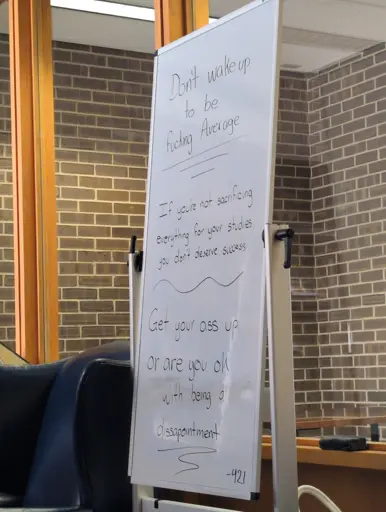 Don't wake up
to be
fucking Average
If you're not sacrificing
everything for your studies
you don't deserve success
Get your ass up
or are you ok
with being a
dissapointment
-421